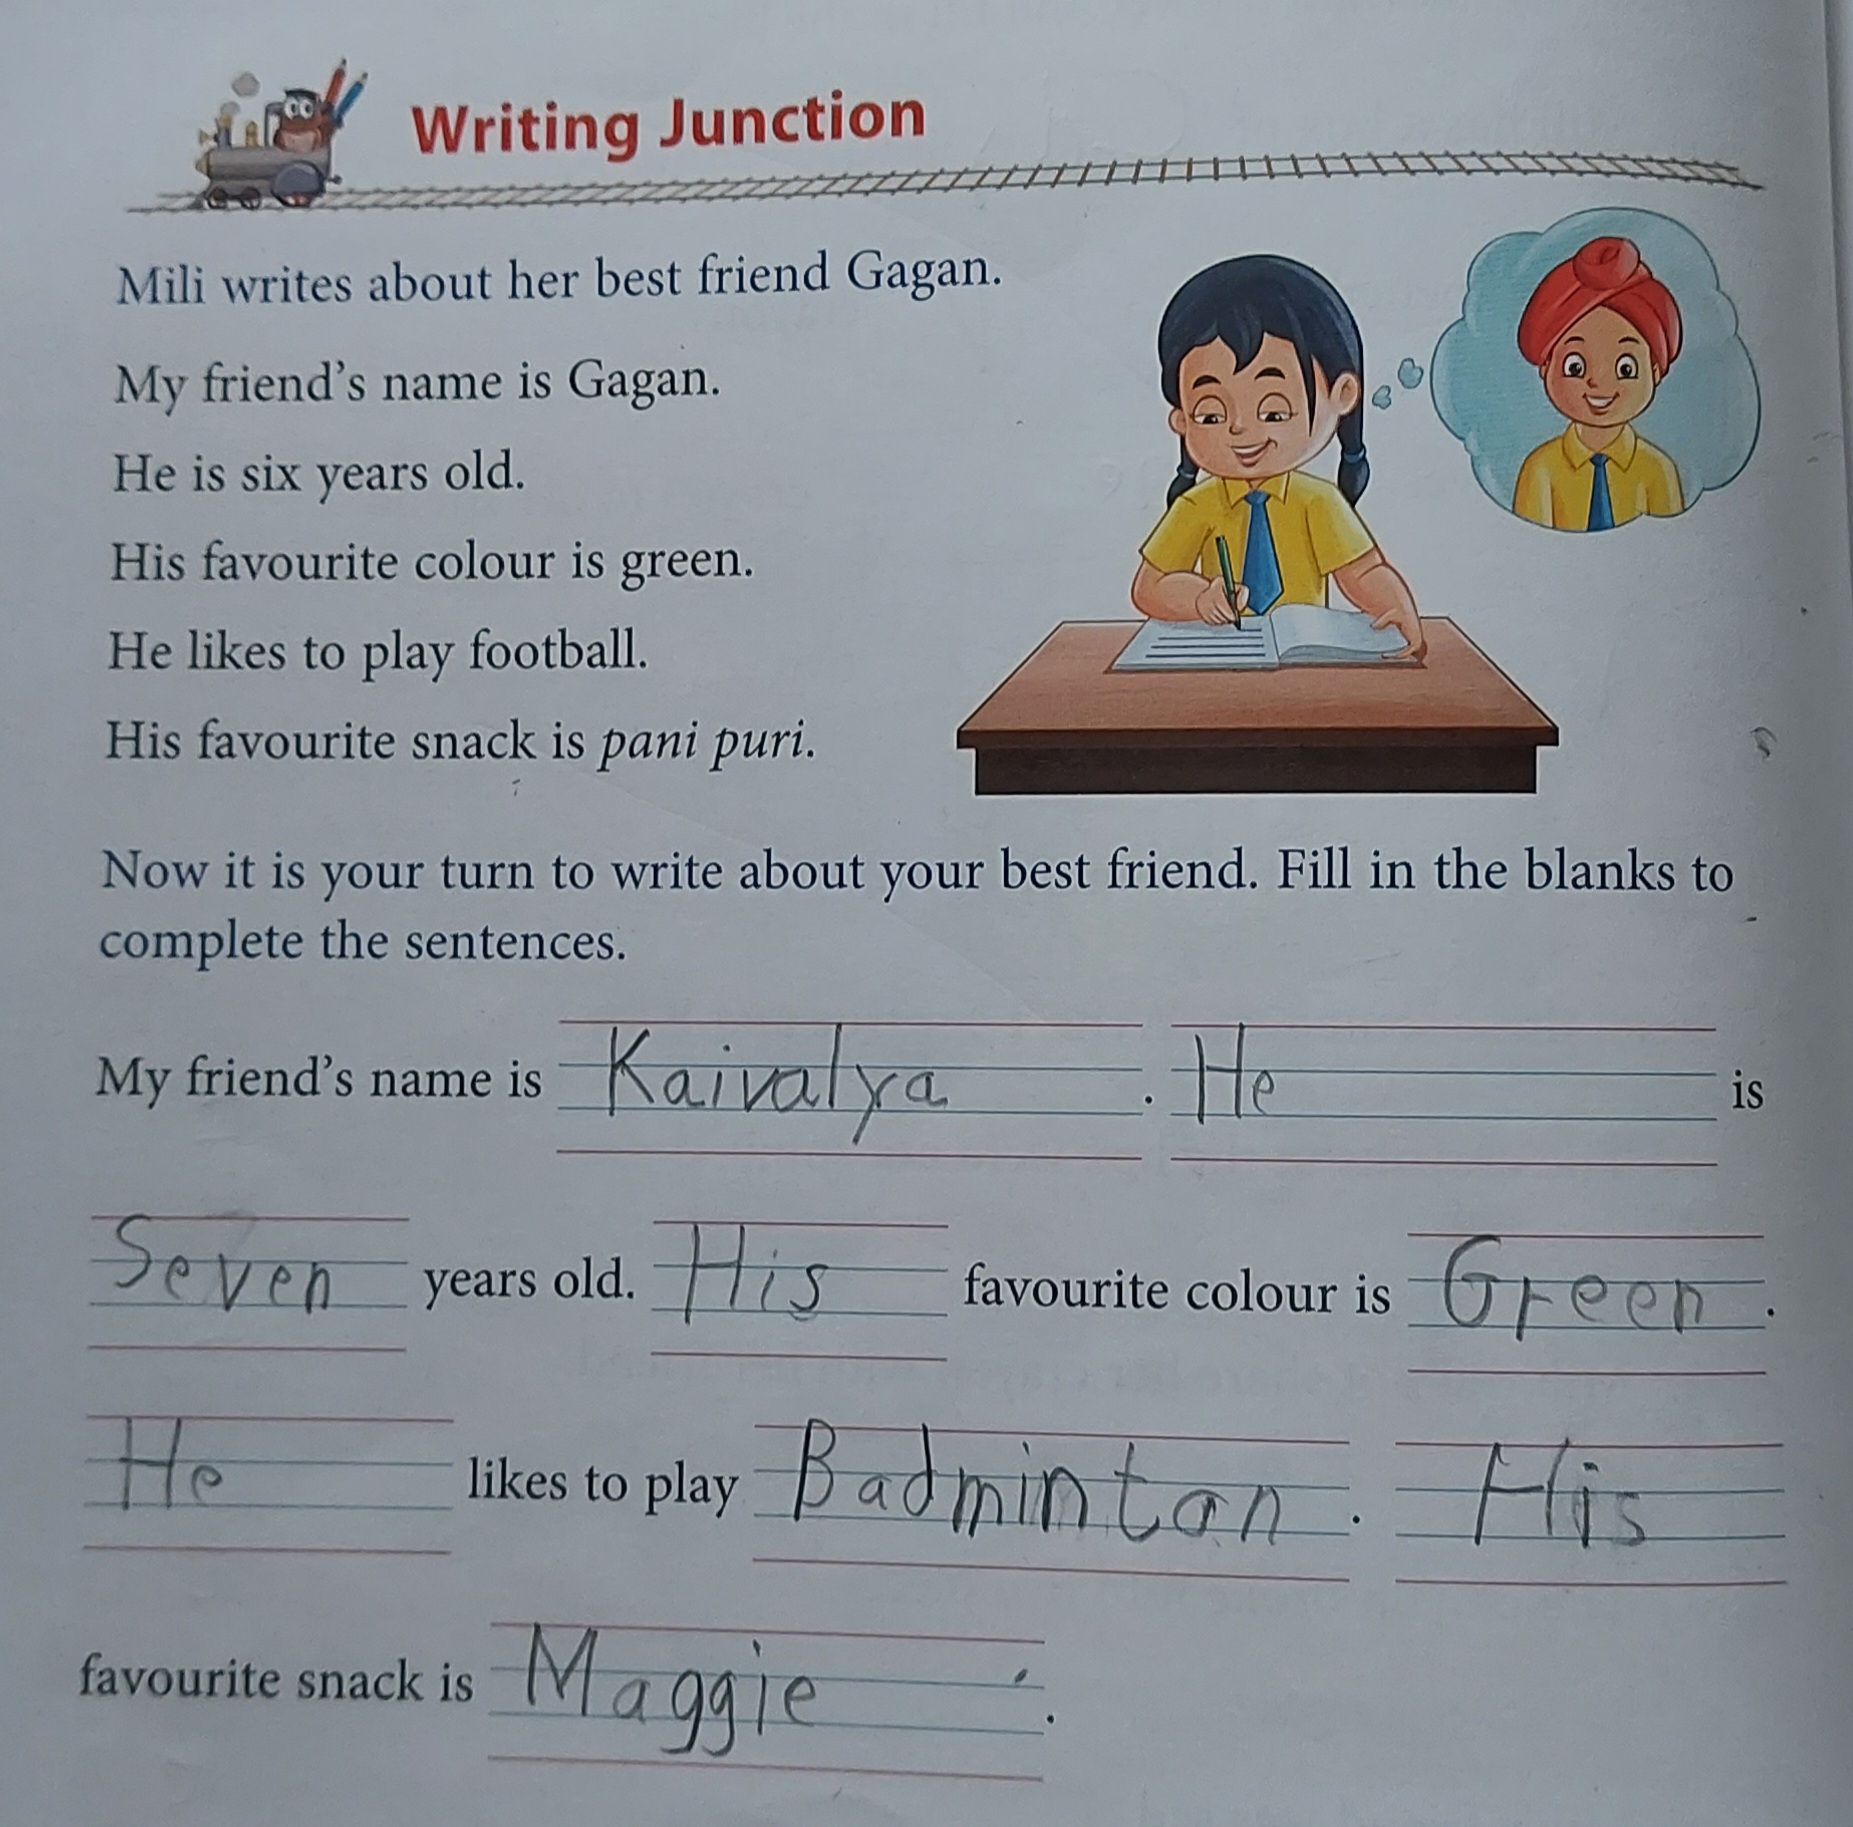 Writing Junction
Mili writes about her best friend Gagan.
My friend's name is Gagan.
He is six years old.
His favourite colour is green.
He likes to play football.
His favourite snack is pani puri.
Now it is your turn to write about your best friend. Fill in the blanks to
complete the sentences.
My friend's name is Kaivalya. He is
Seven years old. His favourite colour is Green.
He likes to play Badmintan. His
favourite snack is Maggie.